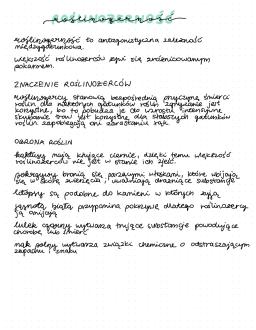 roślinożerność
roślinożerność to antagonistyczna zależność
międzygatunkowa.
większość roślinożerców żywi się zróżnicowanym
pokarmem.
ZNACZENIE ROŚLINOŻERCÓW
roślinożercy stanowią bezpośrednią przyczynę śmierci
roślin dla niektórych gatunków roślin zgryzanie jest
korzystne, bo to pobudza je do wzrostu. intensywne
skubanie traw jest korzystne dla starszych gatunków
roślin zapobiegają oni zarastaniu łąk
OBRONA ROŚLIN
kaktusy mają kłujące ciernie, dzięki temu większość
roślinożerców nie jest w stanie ich zjeść.
pokrzywy bronią się parzącymi włoskami, które wbijają
się w skórę zwierzęcia, uwalniają drażniące substancje
litopsy są podobne do kamieni w których żyją
jasnota biała przypomina pokrzywę dlatego roślinożercy
ją omijają
lulek czarny wytwarza trujące substancje powodujące
chorobę lub śmierć
mak polny wytwarza związki chemiczne o odstraszającym
zapachu i smaku